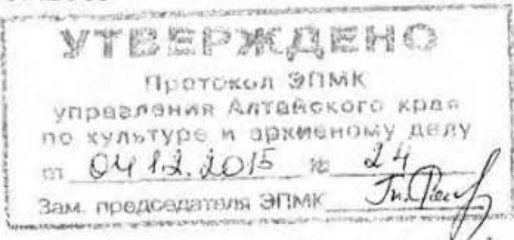 УТВЕРЖДЕНО
Протокол ЭПМК
управления Алтайского края
по культуре и архивному делу
от 04.12.2015 № 24
Зам. председателя ЭПМК